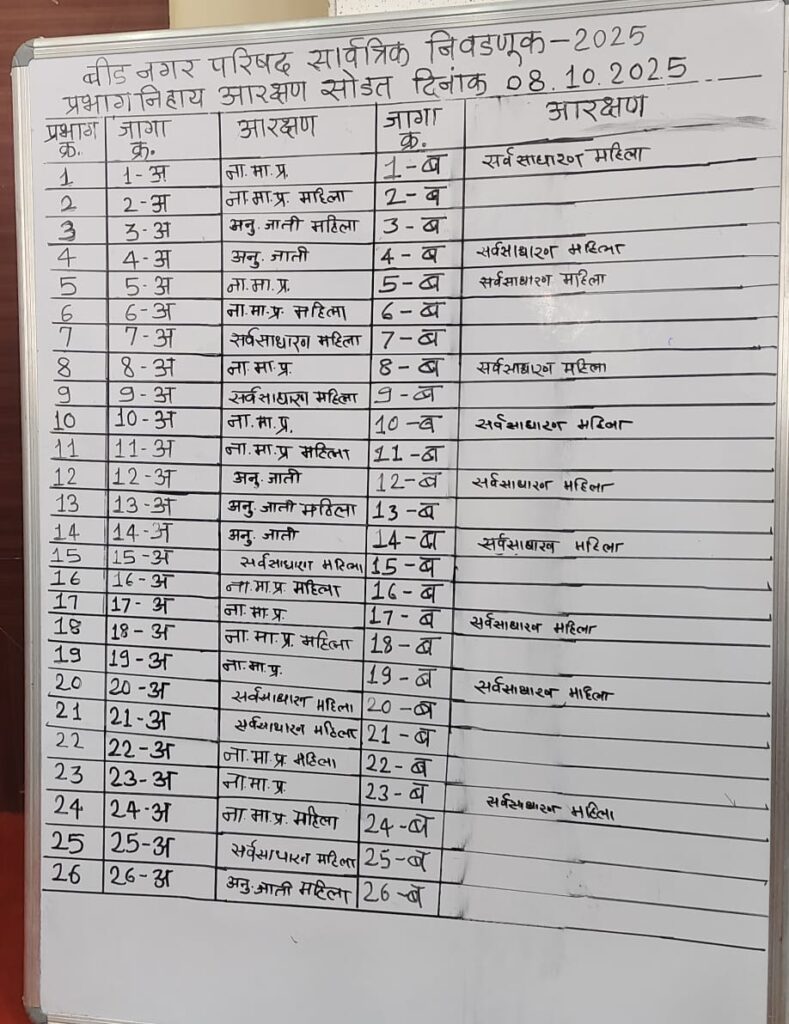 बीड नगर परिषद सार्वत्रिक निवडणूक-2025
प्रभाग निहाय आरक्षण सोडत दिनांक 08.10.2025
प्रभाग क्र. जागा क्र. आरक्षण जागा क्र. आरक्षण
1 1-अ ना.मा.प्र. 1-ब सर्वसाधारण महिला
2 2-अ ना.मा.प्र. महिला 2-ब
3 3-अ अनु.जाती महिला 3-ब
4 4-अ अनु.जाती 4-ब सर्वसाधारण महिला
5 5-अ ना.मा.प्र. 5-ब सर्वसाधारण महिला
6 6-अ ना.मा.प्र. महिला 6-ब
7 7-अ सर्वसाधारण महिला 7-ब
8 8-अ ना.मा.प्र. 8-ब सर्वसाधारण महिला
9 9-अ सर्वसाधारण महिला 9-ब
10 10-अ ना.मा.प्र. 10-ब सर्वसाधारण महिला
11 11-अ ना.मा.प्र महिला 11-ब
12 12-अ अनु.जाती 12-ब सर्वसाधारण महिला
13 13-अ अनु.जाती महिला 13-ब
14 14-अ अनु.जाती 14-ब सर्वसाधारण महिला
15 15-अ सर्वसाधारण महिला 15-ब
16 16-अ ना.मा.प्र. महिला 16-ब
17 17-अ ना.मा.प्र. 17-ब सर्वसाधारण महिला
18 18-अ ना.मा.प्र. महिला 18-ब
19 19-अ ना.मा.प्र. 19-ब सर्वसाधारण महिला
20 20-अ सर्वसाधारण महिला 20-ब
21 21-अ सर्वसाधारण महिला 21-ब
22 22-अ ना.मा.प्र महिला 22-ब
23 23-अ ना.मा.प्र. 23-ब सर्वसाधारण महिला
24 24-अ ना.मा.प्र. महिला 24-ब
25 25-अ सर्वसाधारण महिला 25-ब
26 26-अ अनु.जाती महिला 26-ब